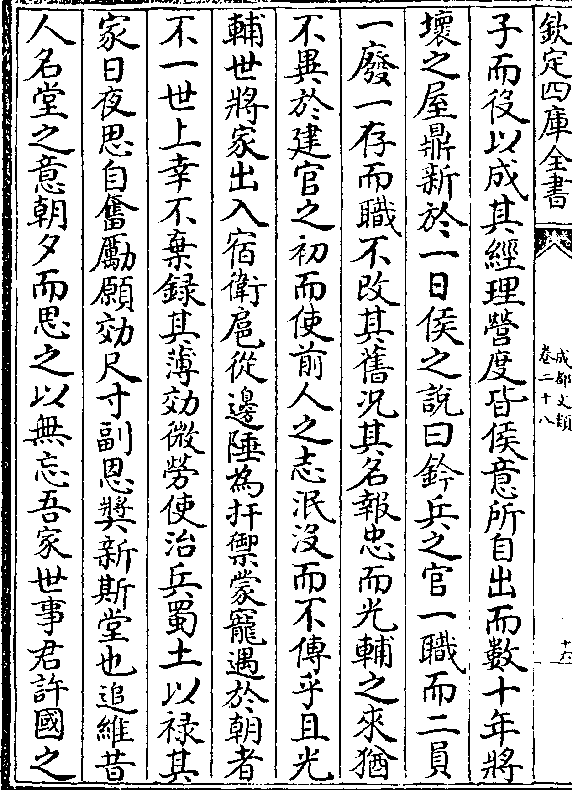 欽定四庫全書
成都文類
卷二十八
十六
子而役以成其經理營度皆侯意所自出而數十年將
壞之屋鼎新於一日侯之說曰鈐兵之官一職而二員
一廢一存而職不改其舊況其名報忠而光輔之來猶
不異於建官之初而使前人之志泯没而不傳乎且光
輔世將家出入宿衛扈從邊陲為扞禦蒙寵遇於朝者
不一世上幸不棄録其薄効微勞使治兵蜀土以禄其
家日夜思自奮勵願効尺寸副恩奬新斯堂也追維昔
人名堂之意朝夕而思之以無忘吾家世事君許國之